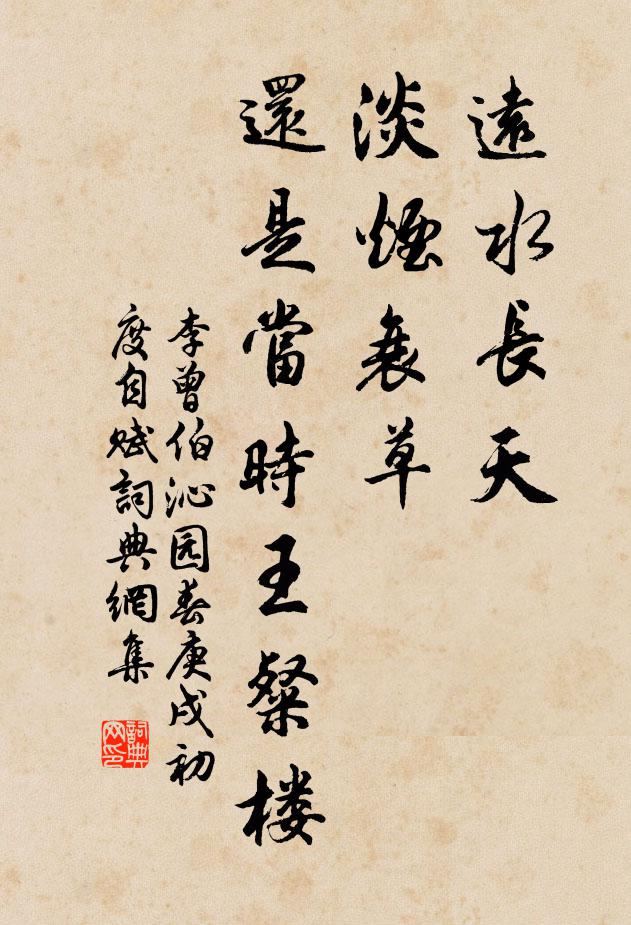 遠水長天
淡煙衰草
還是當時王粲楼
李曾伯沁园春庚戌初
度自赋詞典網集
詞典网印